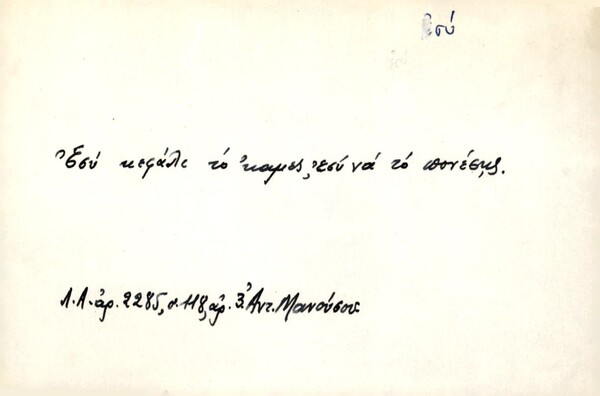 ἐσύ
Ἐσύ κεφάλι τό ἔκαμες, ἐσύ νά τό πονέσῃς.
Λ.Α. ἀρ. 2285, σ. 118, ἀρ. 3. Ἀντ. Μανούσου